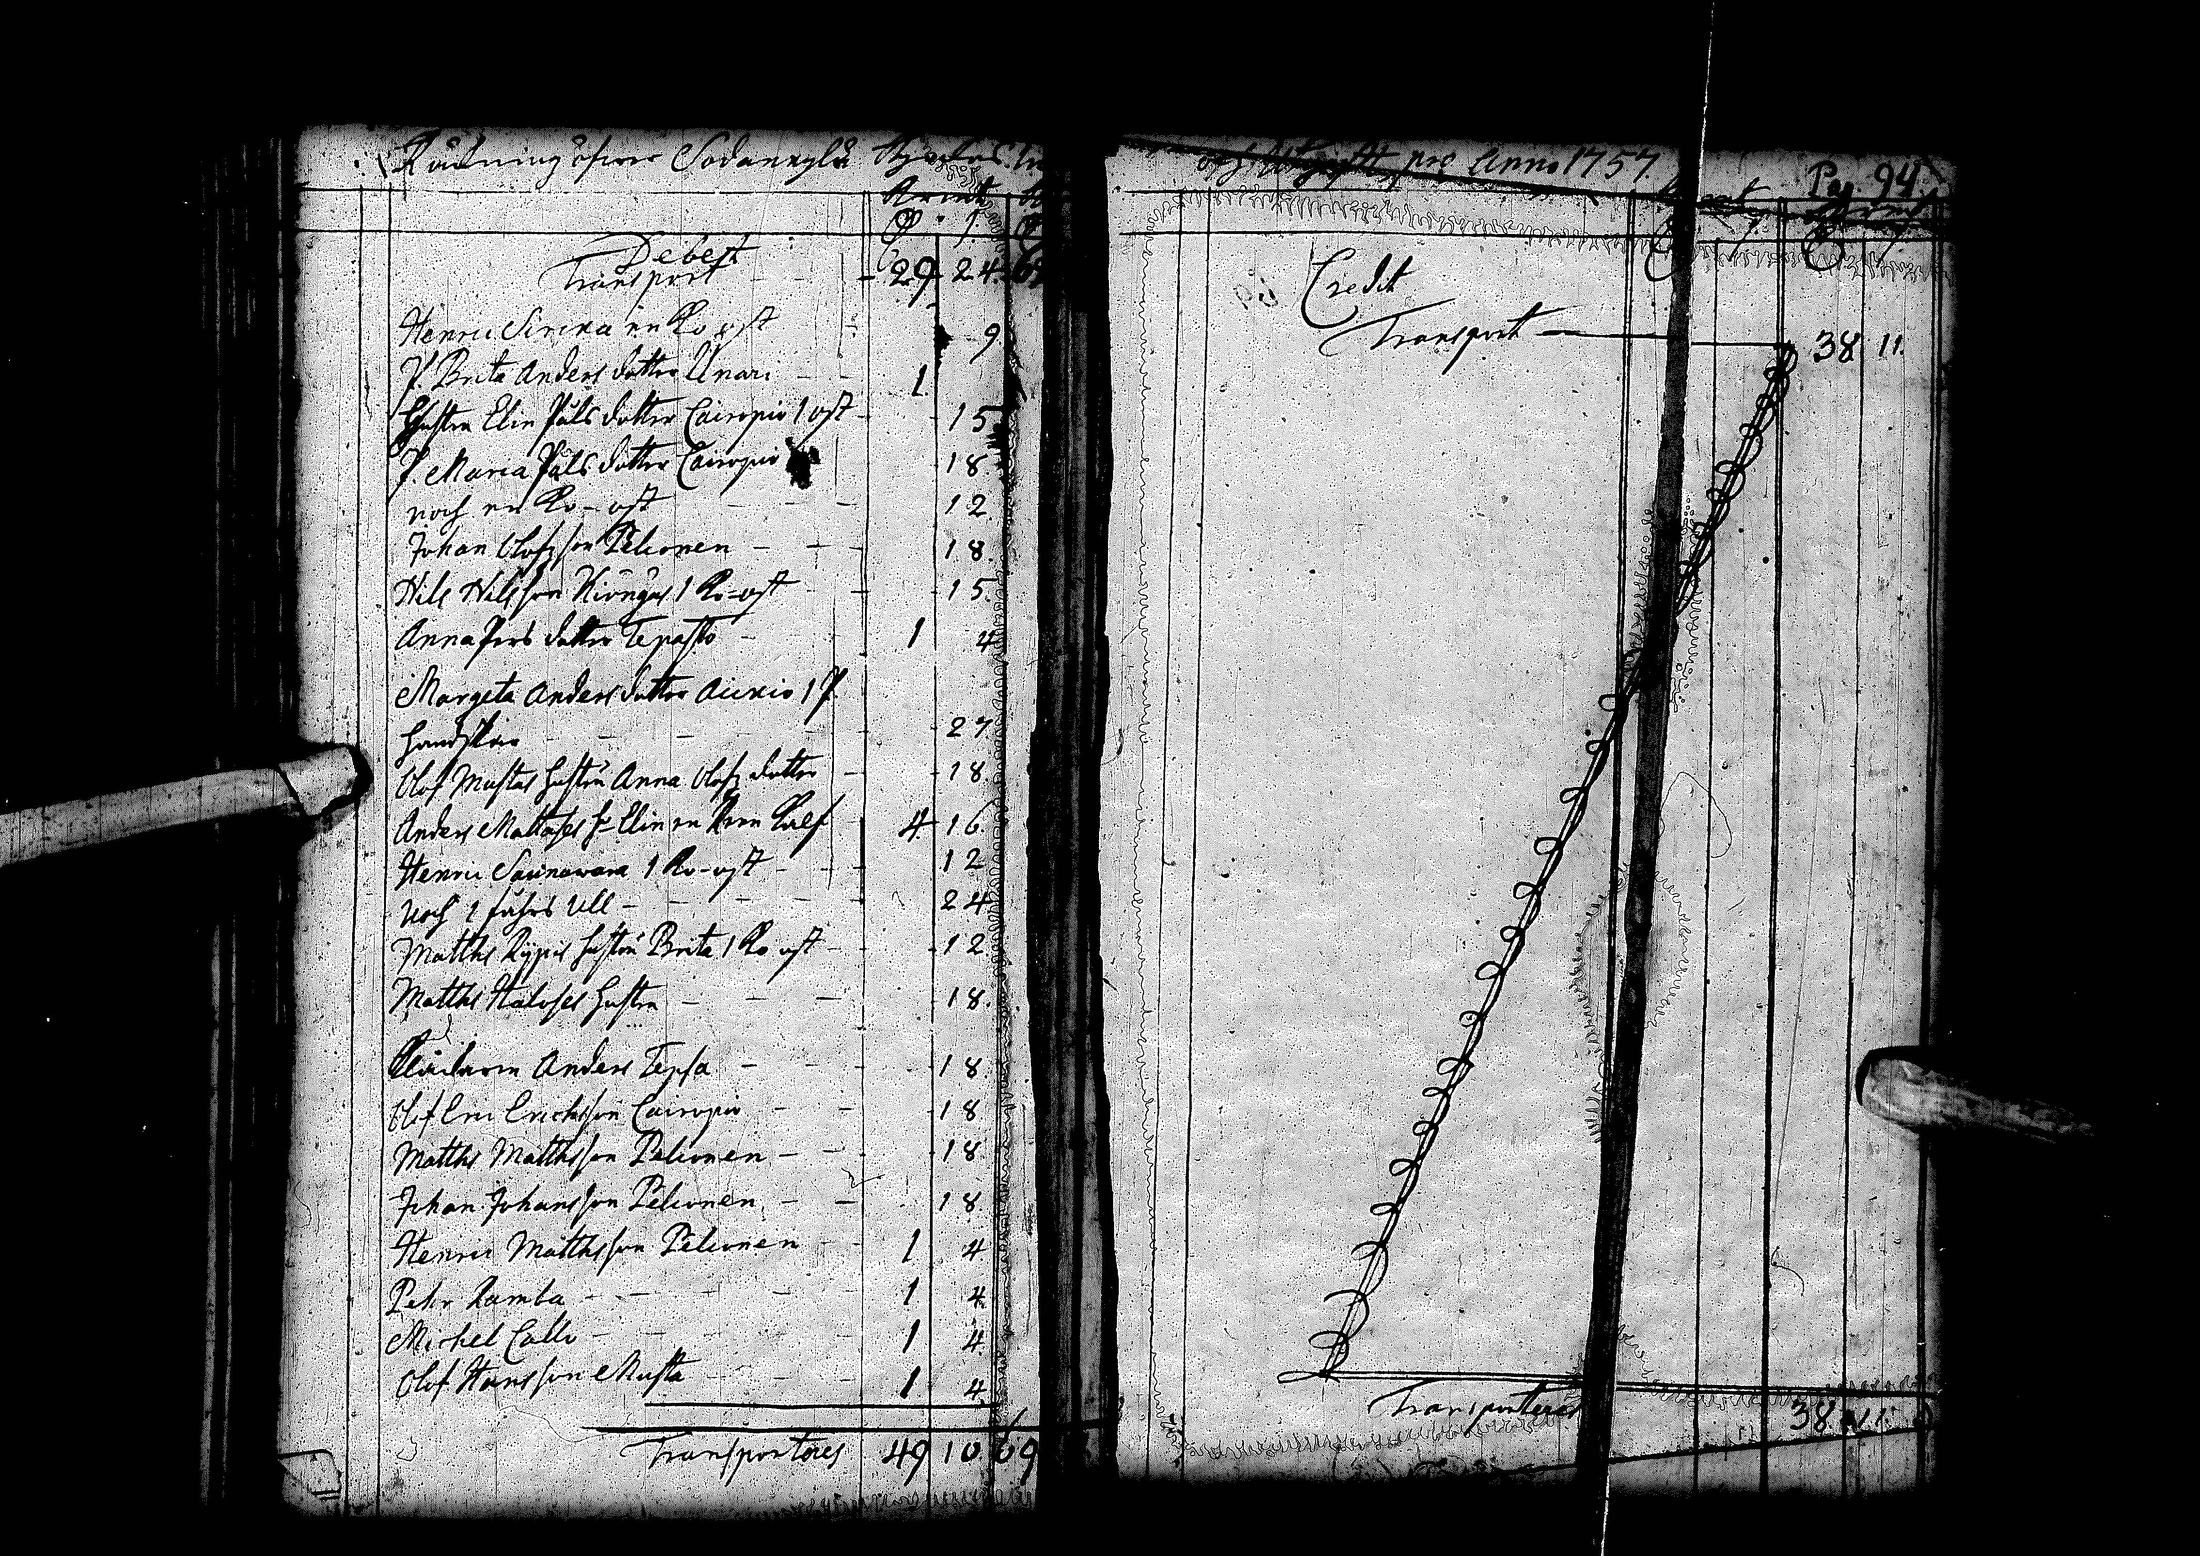 Räkning öfwer Sodankylä Kyrckos In
Debet
Transport - - 29 24 69
Henric Sirkka en Ko ost - 9.
P. Brita Anders dotter Unari - - 1
Hustru Elin Påls dotter Cairopio 1 ost - 15
P. Maria Påls dotter Cairopio - 18
noch en Ko-ost - - - 12
Johan Olofzson Pelconen - - - 18.
Nils Nilsson Kiöngas 1 Ko-ost - - 15.
Anna Pers dotter Tepasto - - 1 4
Margeta Anders dotter Aickio 1 P.
handskar - - - - 27
Olof Mustas hustru Anna Olofz dotter - 18.
Anders Mattoses h. Elin en Kalf - 4 16.
Henric Saunawara 1 Ko-ost - - 12
noch 1 fåhrs Ull - - - - 24
Matths hustru Brita 1 Ko ost - - 12
Matths Haloses hustru - - - 18.
Anders Tepsa - - 18
Ericksson Cairopio - - 18
Matths Matthsson Pelconen - - 18
Johan Johansson Pelconen - - 18.
Henric Matthsson Pelconen - - 1 4
Pehr Ramba - - - 1 4.
Michel Callo - - - 1 4.
Olof Hansson Musta - - 1 4
Transporteres 49 10 69
och Utgift pro Anno 1757. Pag. 94.
Credit
Transport - 38 11.
Transporteres 38 11.